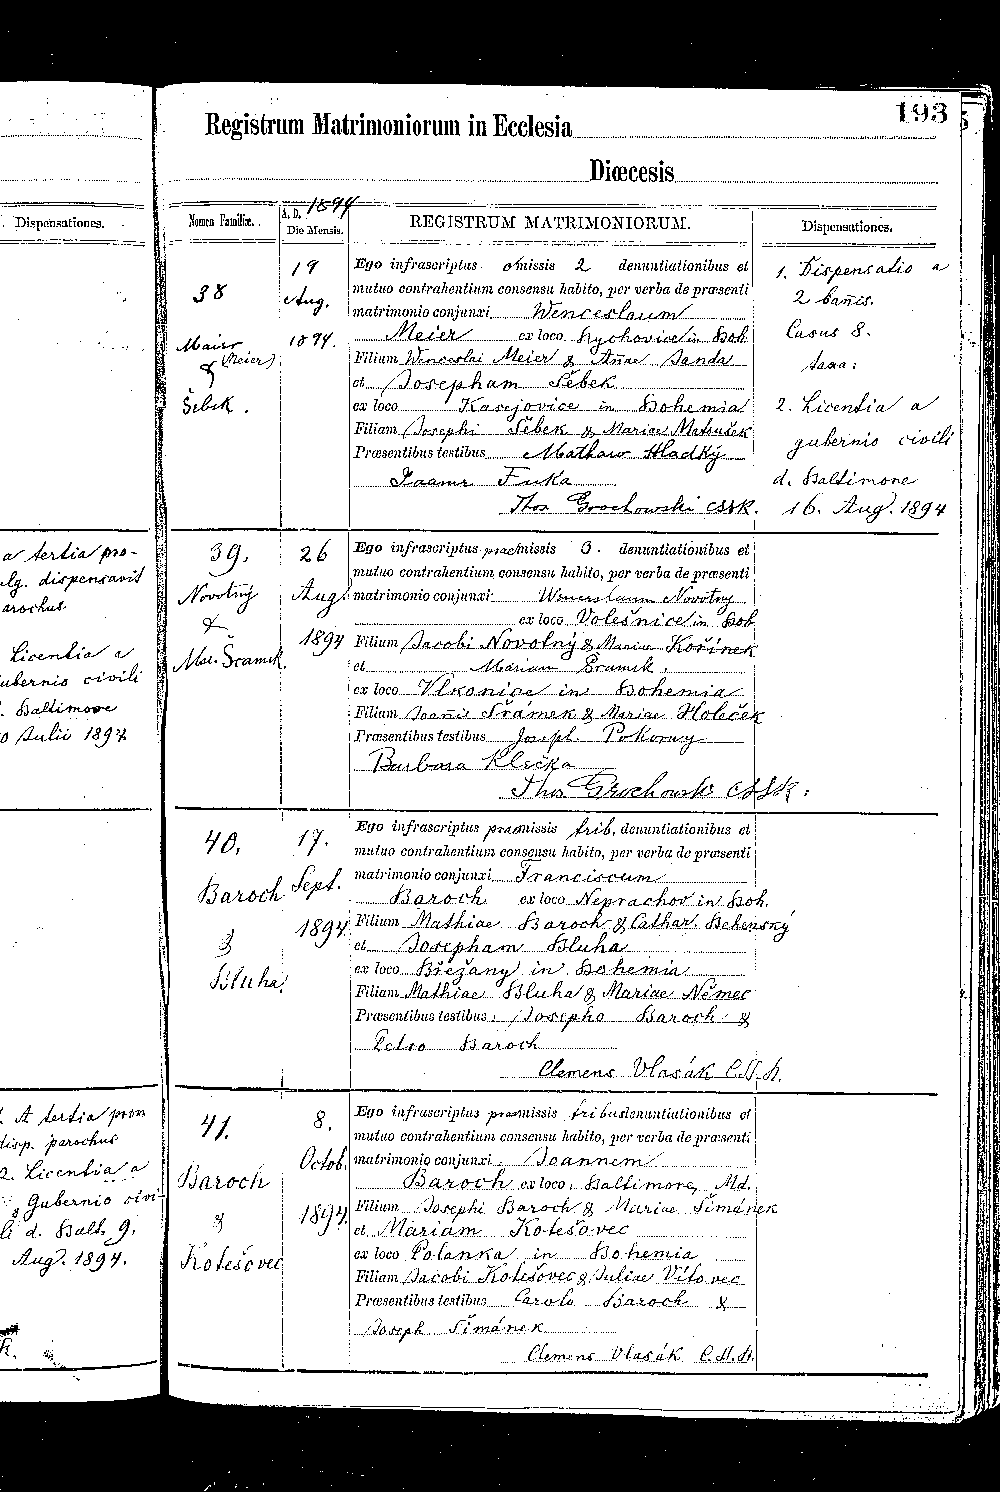 193
Registrum Matrimoniorum in Ecclesia
Diœcesis
Dispensationes.
a tertia pro-
ulg. dispensavit
parochus.
Licentia a
ubernio civili
d. Baltimore
Julii 1894
A tertia prom
disp. parochus
2. Licentia a
Gubernio civi-
li d. Balt. 9.
Aug. 1894.
Nomen Familiæ.
A. D. 1894
Die Mensis.
REGISTRUM MATRIMONIORUM.
Dispensationes.
38
Maier
(Meier)
&
Šebek.
19
Aug.
1894.
Ego infrascriptus omissis 2 denuntiationibus et
mutuo contrahentium consensu habito, per verba de præsenti
matrimonio conjunxi Wenceslaum
Meier ex loco Hychovice in Boh.
Filium Wenceslai Meier & Annae Janda
et Josepham Šebek
ex loco Kasejovice in Bohemia
Filiam Josephi Šebek & Mariae Matoušek
Præsentibus testibus Mathaeo Hladký
Fuka
Thos Grochowski CSSR.
1. Dispensatio a
2 bannis.
Casus 8.
taxa:
2. Licentia a
gubernio civili
d. Baltimore
16. Aug. 1894
39.
Novotný
&
Mar. Šramek.
26
Aug.
1894
Ego infrascriptus præmissis 3. denuntiationibus et
mutuo contrahentium consensu habito, per verba de præsenti
matrimonio conjunxi Wenceslaum Novotny
ex loco Volešnice in Boh
Filium Jacobi Novotný & Mariae Kořínek
et Mariam Šramek.
ex loco Vlkonice in Bohemia
Filiam Joannis Šrámek & Mariae Holeček
Præsentibus testibus Joseph Pokorny
Barbara Klečka
Thos Grochowski CSSR.
40.
Baroch
&
Bluha.
17.
Sept.
1894.
Ego infrascriptus præmissis trib. denuntiationibus et
mutuo contrahentium consensu habito, per verba de præsenti
matrimonio conjunxi Franciscum
Baroch ex loco Neprachov in Boh.
Filium Mathiae Baroch & Cathar. Behenský
et Josepham Bluha
ex loco Břežany in Bohemia
Filiam Mathiae Bluha & Mariae Němec
Præsentibus testibus Josepho Baroch &
Petro Baroch
Clemens Vlasák C.SS.R.
41.
Baroch
&
Kotešovec
8.
Octob.
1894.
Ego infrascriptus præmissis tribus denuntiationibus et
mutuo contrahentium consensu habito, per verba de præsenti
matrimonio conjunxi Joannem
Baroch ex loco Baltimore, Md.
Filium Josephi Baroch & Mariae Šimánek
et Mariam Kotešovec
ex loco Polanka in Bohemia
Filiam Jacobi Kotešovec & Juliae Vítovec
Præsentibus testibus Carolo Baroch &
Joseph Šimánek
Clemens Vlasák C.SS.R.